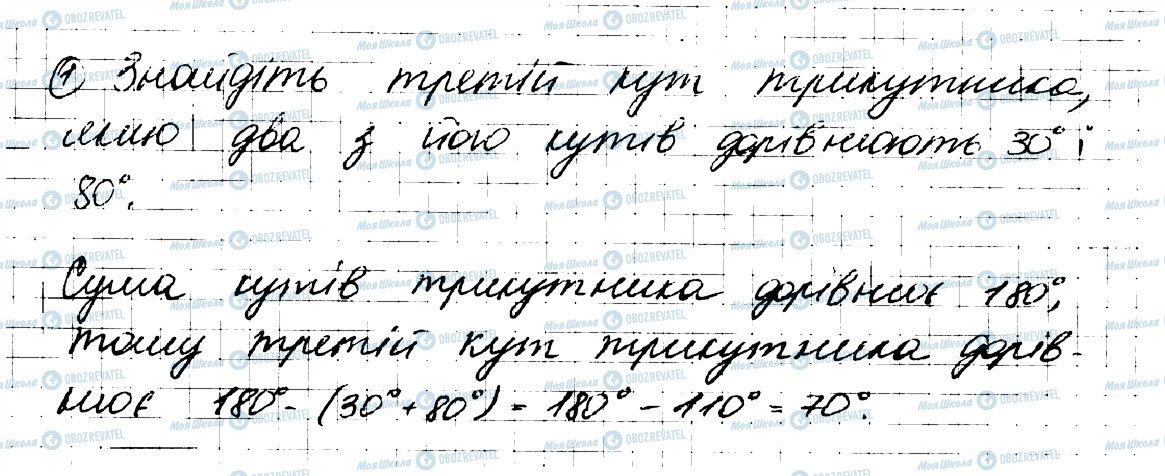 ① Знайдіть третій кут трикутника,
якщо два з його кутів дорівнюють 30° і
80°.
Сума кутів трикутника дорівнює 180°,
тому третій кут трикутника дорів-
нює 180° - (30° + 80°) = 180° - 110° = 70°.